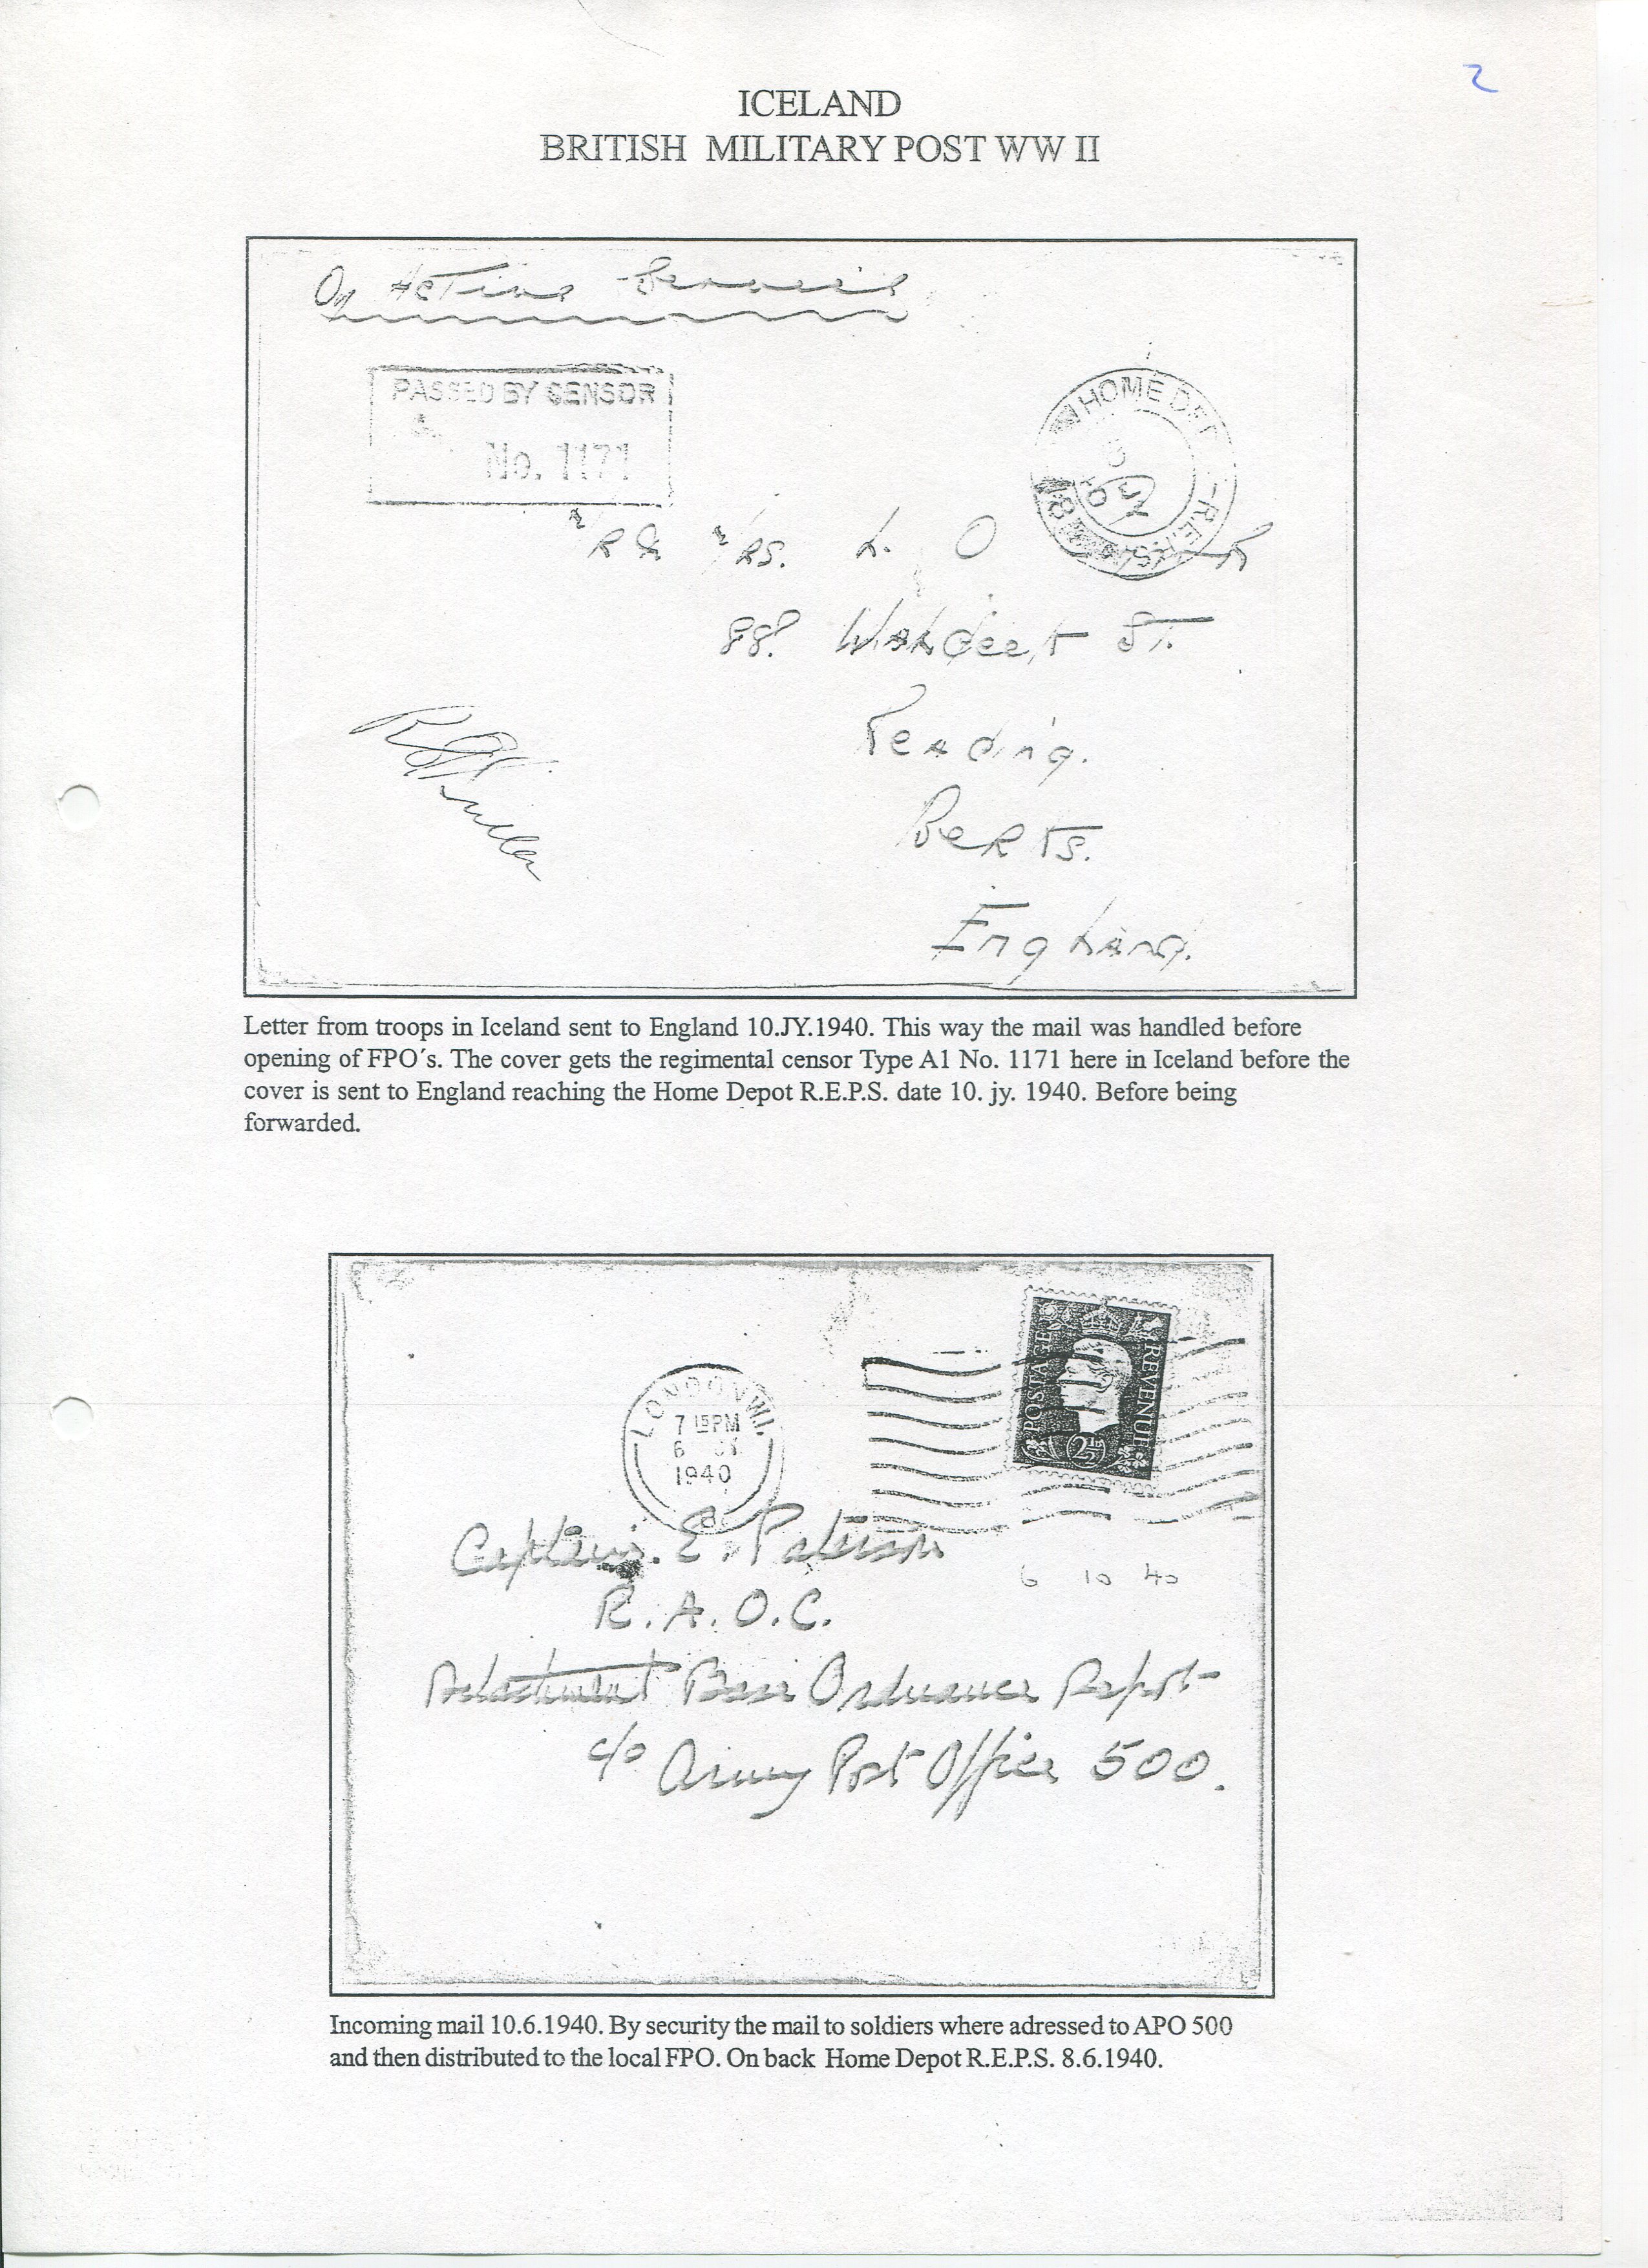 2
ICELAND
BRITISH MILITARY POST WW II
On Active Service
PASSED BY CENSOR
No. 1171
HOME DEPOT R.E.P.S.
MR & MRS. L. O
88. WALdeck ST.
Reading.
BeRKs.
England.
Letter from troops in Iceland sent to England 10.JY.1940. This way the mail was handled before
opening of FPO´s. The cover gets the regimental censor Type A1 No. 1171 here in Iceland before the
cover is sent to England reaching the Home Depot R.E.P.S. date 10. jy. 1940. Before being
forwarded.
POSTAGE REVENUE
2½D
LONDON W.1.
7 15 PM
6
1940
Captain. E. Paterson
6 10 40
R.A.O.C.
Detachment Base Ordnance Depot
c/o Army Post Office 500.
Incoming mail 10.6.1940. By security the mail to soldiers where adressed to APO 500
and then distributed to the local FPO. On back Home Depot R.E.P.S. 8.6.1940.